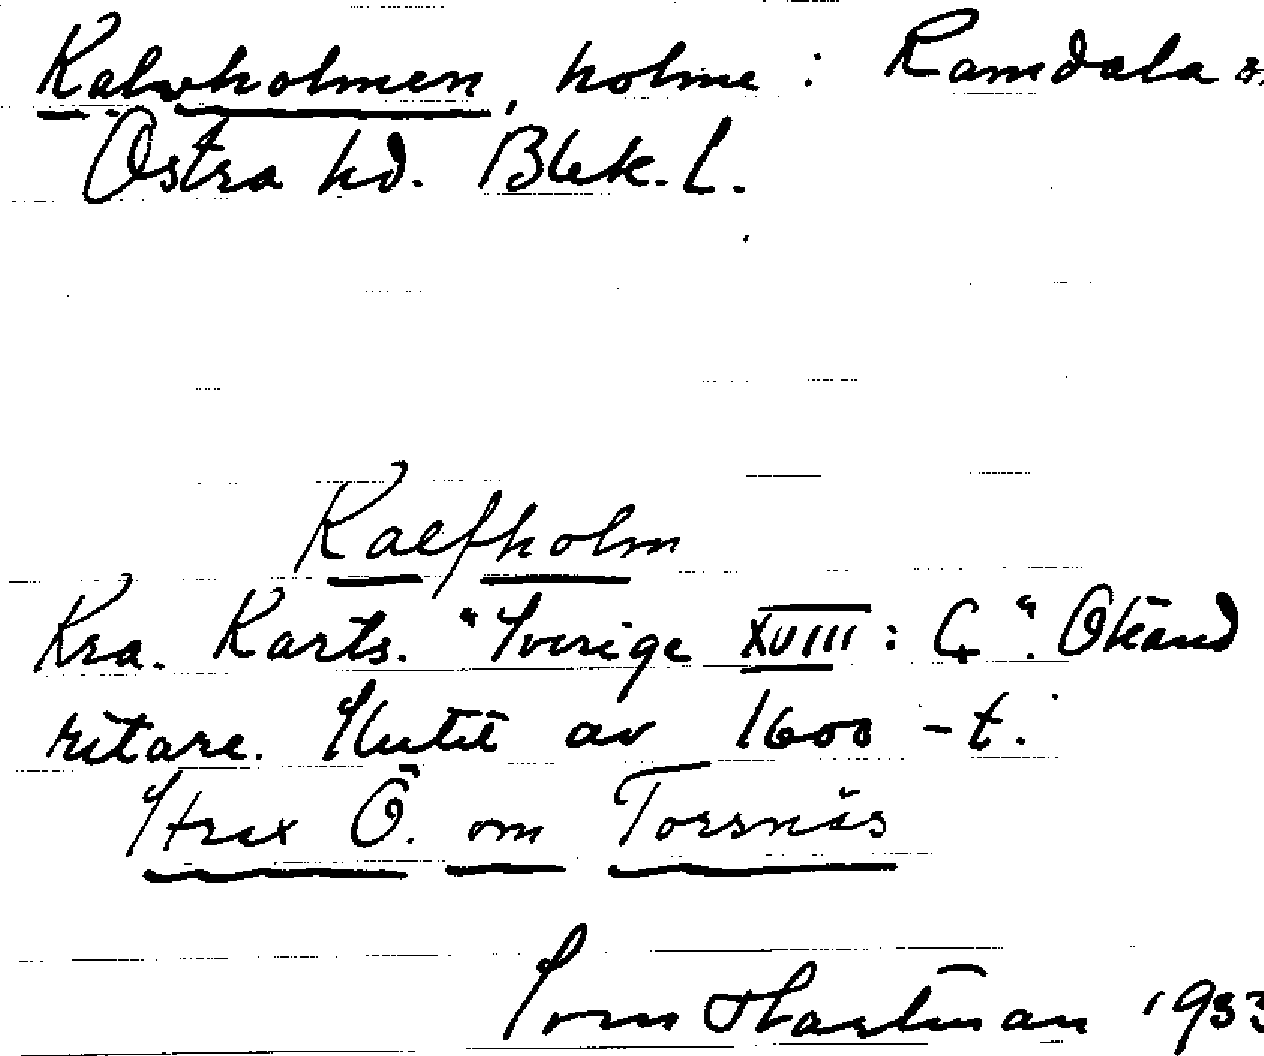 Kalvholmen, holme : Ramdala s.
Östra hd. Blek. L.
Kalfholm
Kra. Karts. "Sverige XVIII: C4". Okänd
ritare. Slutet av 1600-t.
Strax Ö. om Torsnäs
Sven Hartman 1933